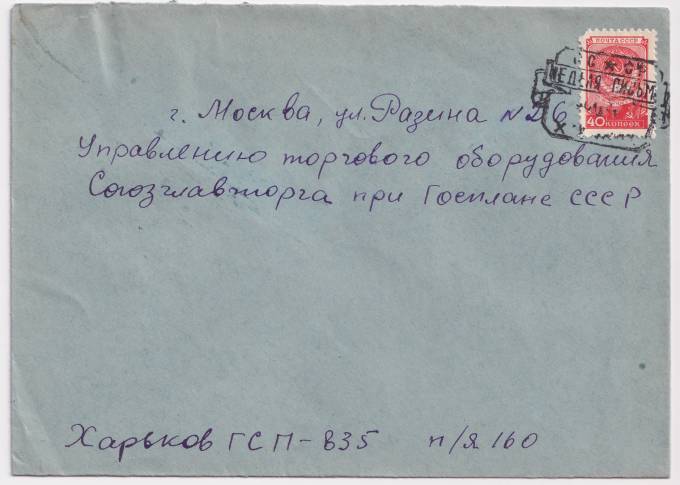 ПОЧТА СССР
НЕДЕЛЯ ПИСЬМ
40 КОПЕЕК
г. Москва, ул. Разина №26
Управлению торгового оборудования
Союзглавторга при Госплане СССР
Харьков ГСП-835 п/я 160